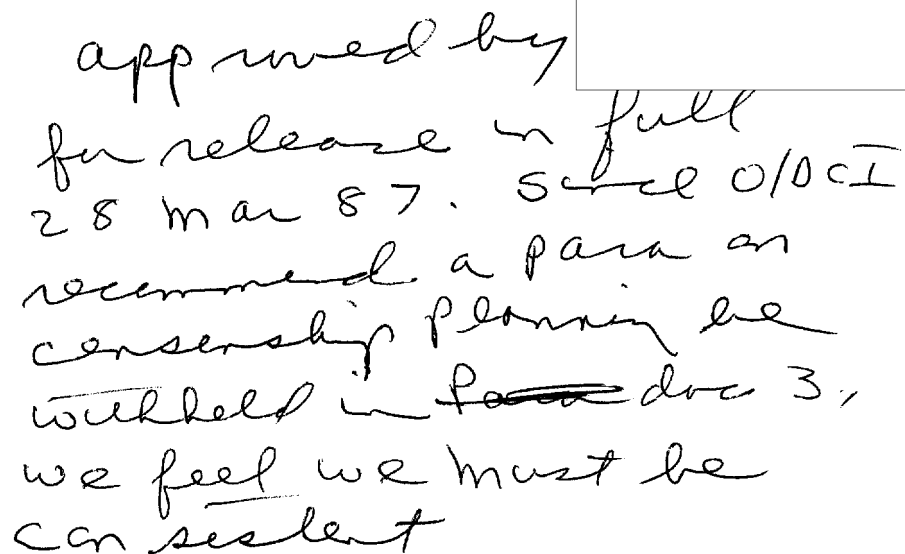 approved by
for release in full
28 Mar 87. Since O/DCI
recommend a para on
censorship planning be
withheld in doc 3,
we feel we must be
consistent